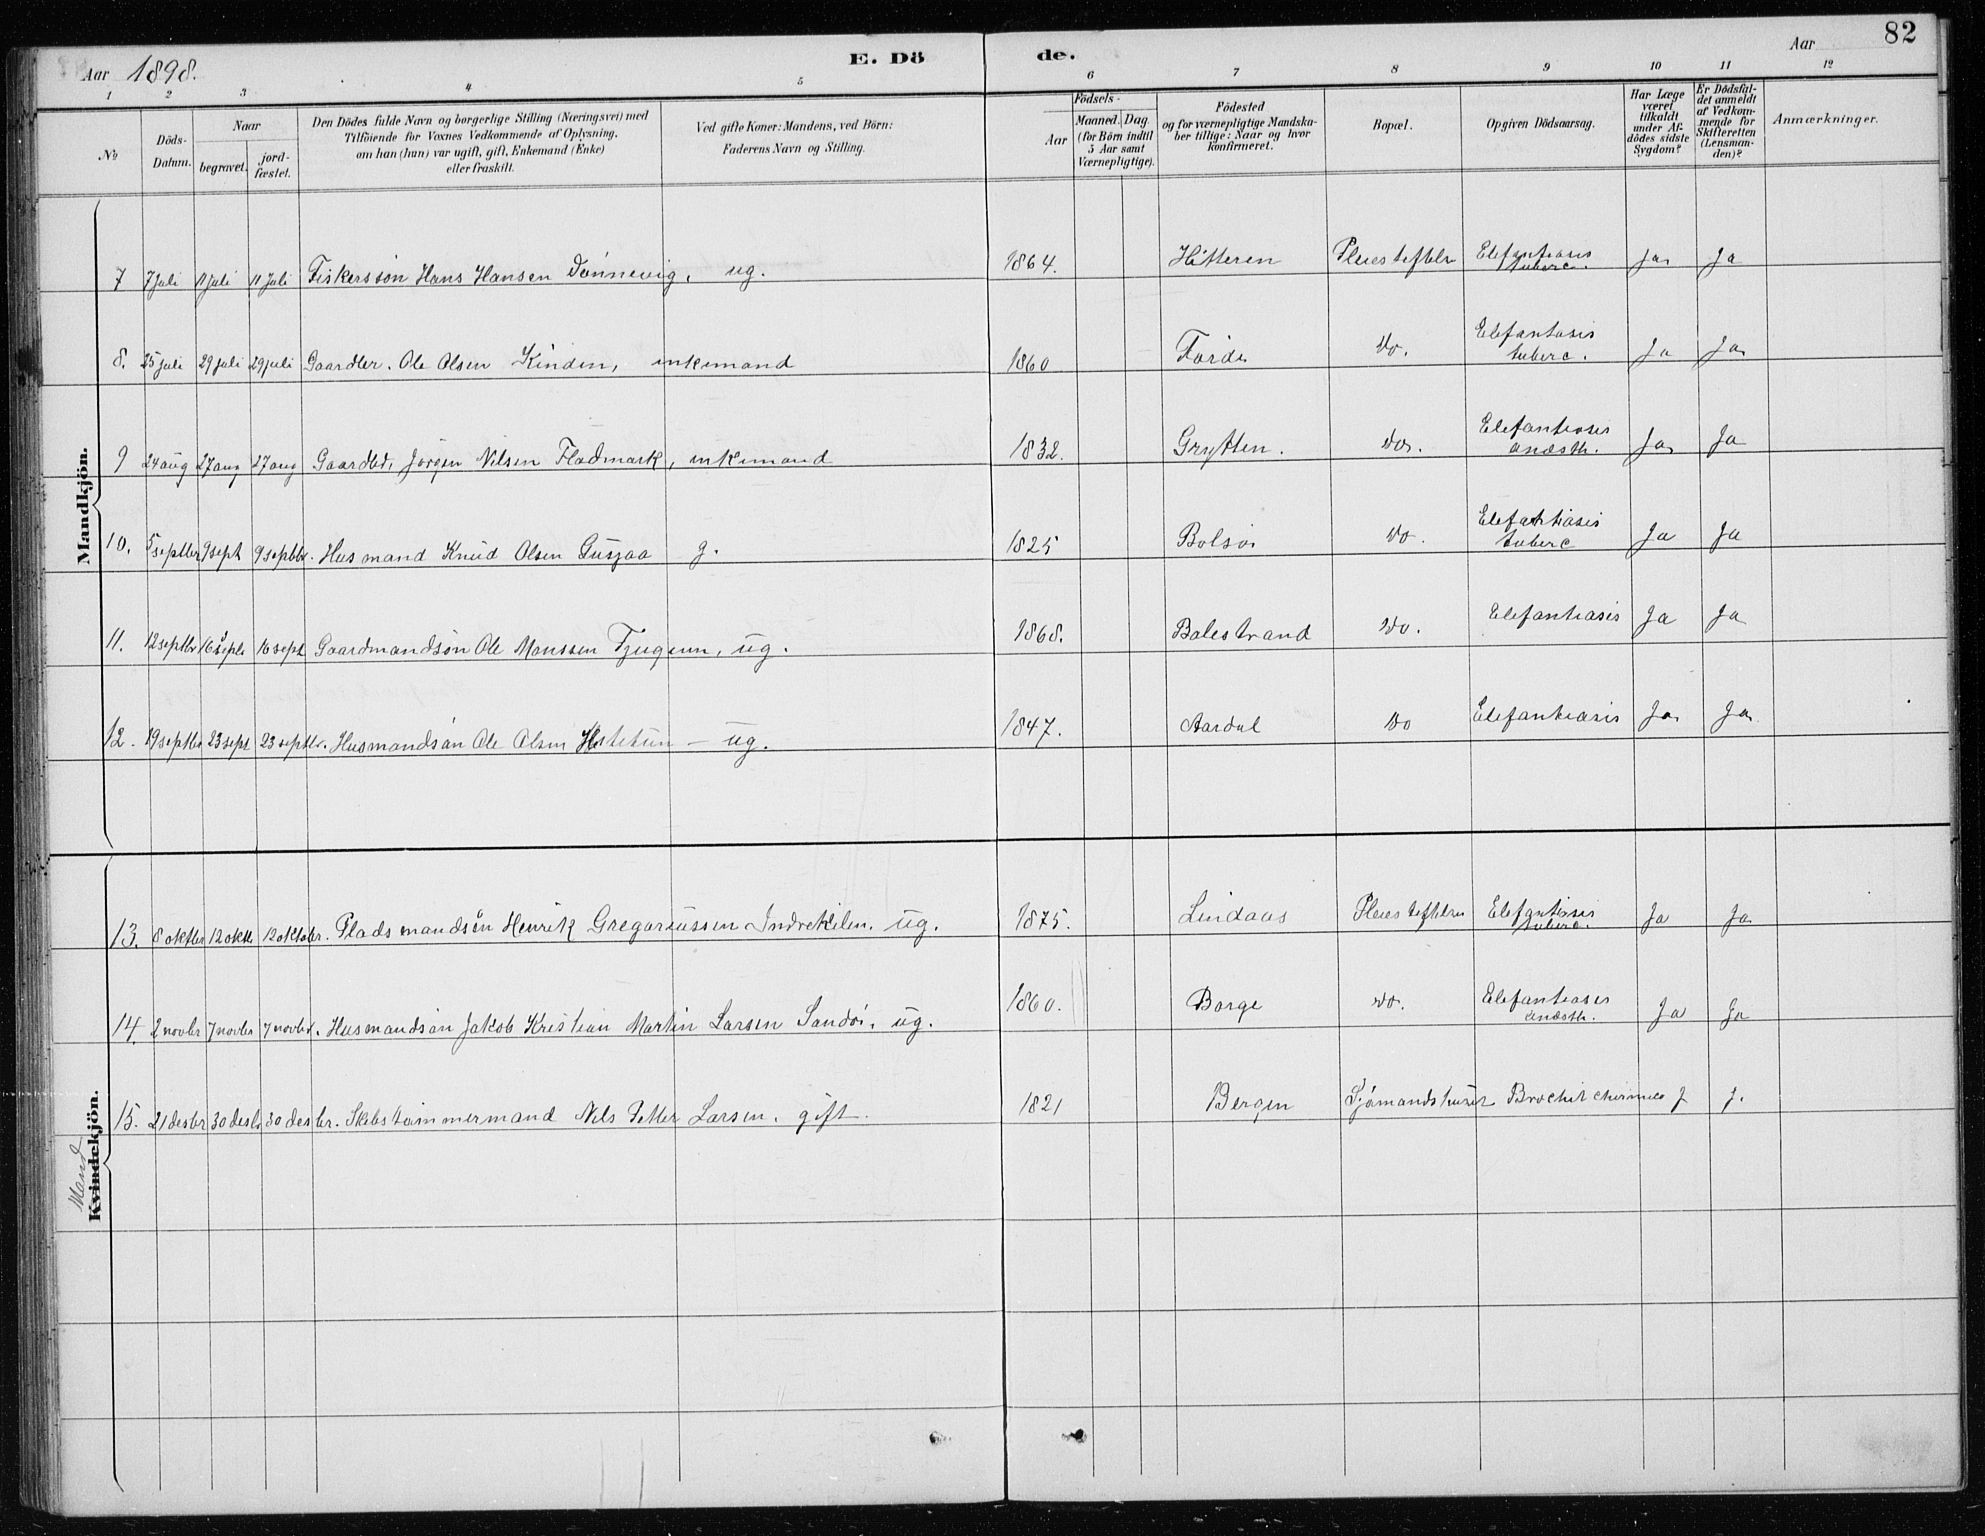 82
Aar 1898. E. Dö de. Aar
1 2 3 4 5 6 7 8 9 10 11 12
No
Döds-Datum.
Naar
begravet.
jord-fæstet.
Den Dödes fulde Navn og borgerlige Stilling (Næringsvei) med
Tilföiende for Voxnes Vedkommende af Oplysning,
om han (hun) var ugift, gift, Enkemand (Enke)
eller fraskilt.
Ved gifte Koner: Mandens, ved Börn:
Faderens Navn og Stilling.
Födsels-
Aar
Maaned. Dag.
(for Börn indtil
5 Aar samt
Værnepligtige).
Födested
og for værnepligtige Mandska-
ber tillige: Naar og hvor
konfirmeret.
Bopæl.
Opgiven Dödsaarsag.
Har Læge
været
tilkaldt
under Af-
dödes sidste
Sygdom?
Er Dödsfal-
det anmeldt
af Vedkom-
mende for
Skifteretten
(Lensman-
den)?
Anmærkninger.
Mandkjön.
7 7 juli 11 juli 11 juli Fiskerssön Hans Hansen Dønnevig, ug. 1864. Hitteren Pleiestiftelse Elefantiasis tuberc. Ja Ja
8. 25 juli 29 juli 29 juli Gaardbr. Ole Olsen Kinden, enkemand 1860 Førde Do. Elefantasis tuberc. Ja Ja
9 24 aug 27 aug 27 aug Gaardbr. Jørgen Nilsen Flademark, enkemand 1832. Grytten. Do. Elefantiasis anæsth. Ja Ja
10. 5 septbr 9 sept 9 septbr. Husmand Knud Olsen Gusjaa g. 1825 Bolsø Do. Elefantiasis tuberc Ja Ja
11. 12 septbr 16 septb 16 sept Gaardmandsøn Ole Monssen Tjugum, ug. 1868. Balestrand Do. Elefantiasis Ja Ja
12. 19 septbr 23 sept 23 septbr. Husmandsøn Ole Olsen Hestetun — ug. 1847. Aardal Do Elefantiasis Ja Ja
Mand
Kvindekjön.
13. 8 oktbr 12 oktb 12 oktobr. Pladsmandsön Henrik Gregoriussen Indrekilen. ug. 1875. Lindaas Pleiestiftelse Elefantiasis tuberc. Ja Ja
14. 2 novbr 7 novbr 7 novbr. Husmandsøn Jakob Kristian Martin Larsen Sandøi. ug. 1860. Borge Do. Elefantiasis anæsth. Ja Ja
15. 21 desbr 30 desb 30 desbr. Skibstømmermand Nils Petter Larsen. gift — 1821 Bergen Sjømandshuset j j.